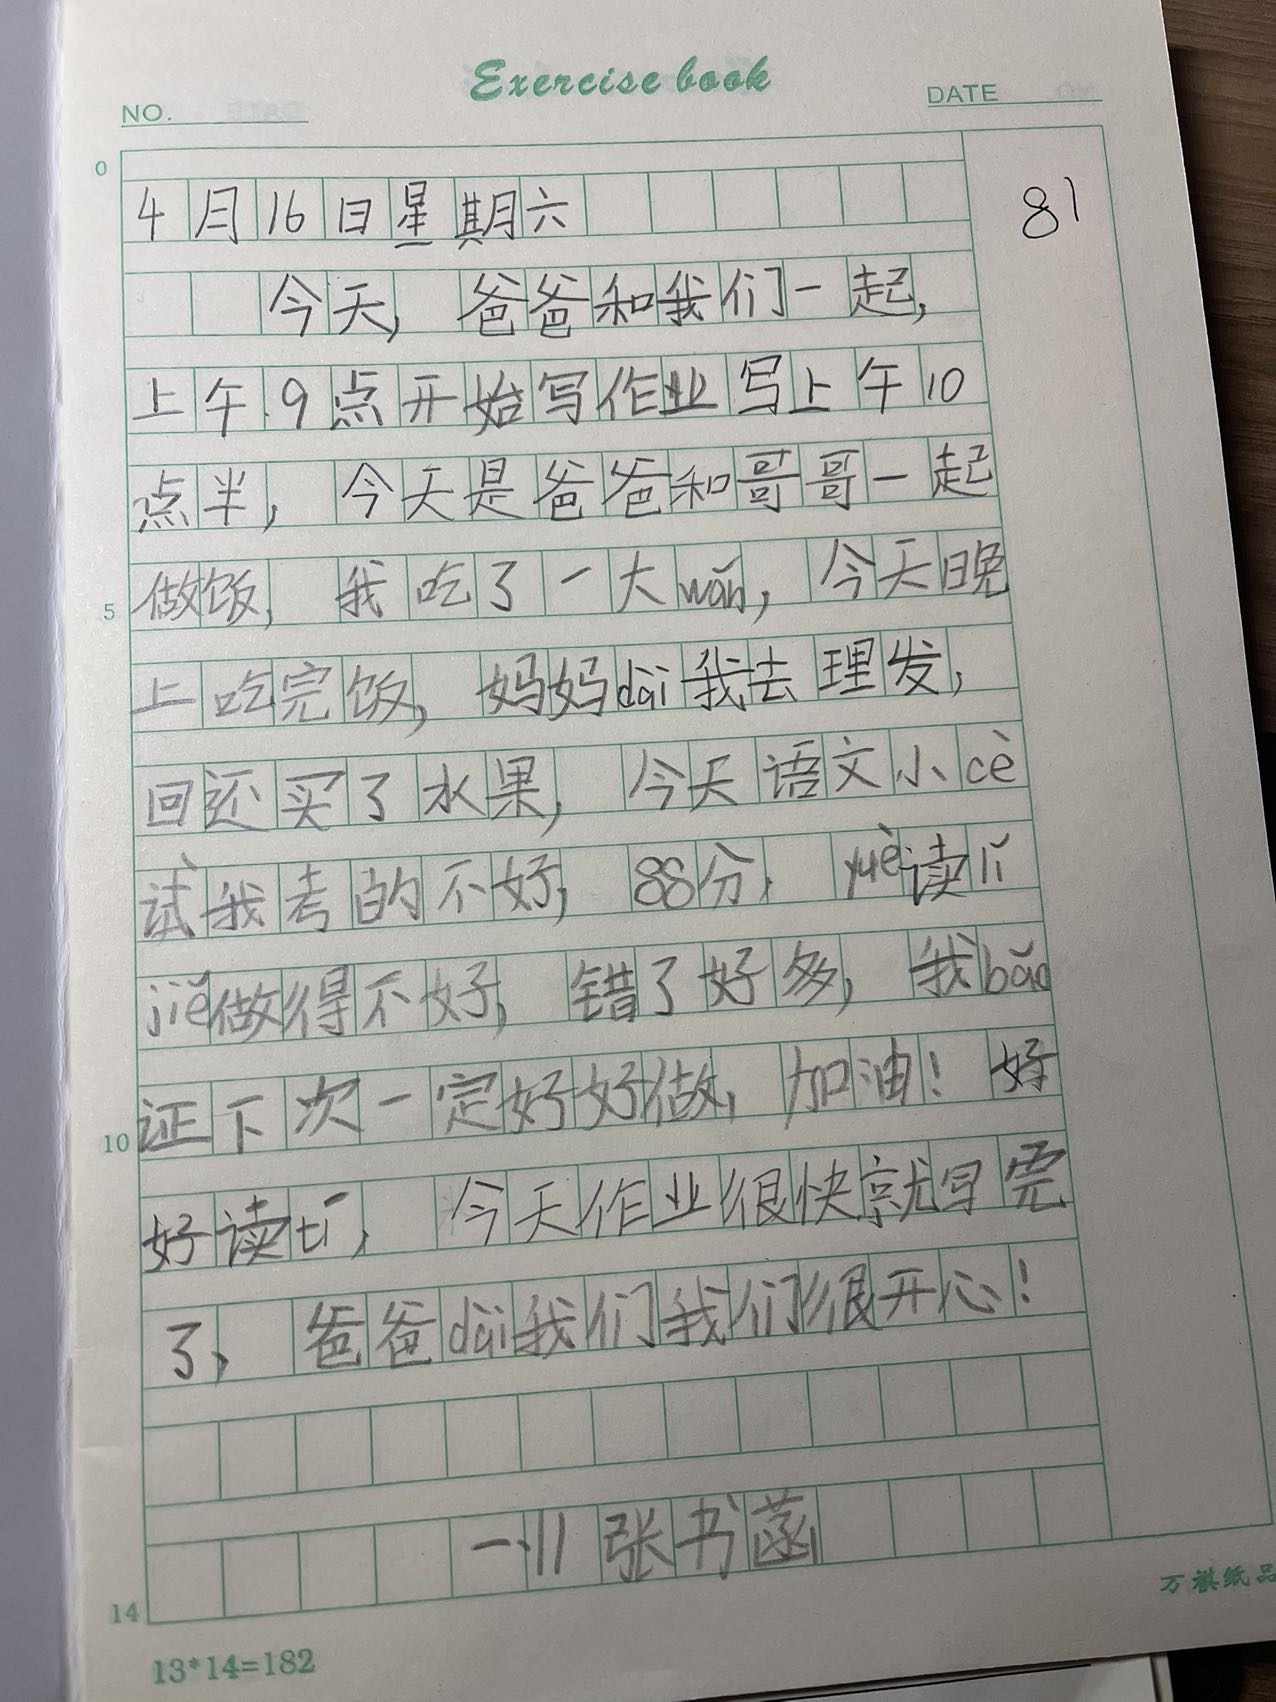 Exercise book
NO.
DATE
0
81
4月16日星期六
今天，爸爸和我们一起，
上午9点开始写作业写上午10
点半，今天是爸爸和哥哥一起
5
做饭，我吃了一大wǎn，今天晚
上吃完饭，妈妈dài我去理发，
回还买了水果，今天语文小cè
试我考的不好，88分，yuè读lǐ
jiě做得不好，错了好多，我bǎo
10
证下次一定好好做，加油！好
好读tí，今天作业很快就写完
了，爸爸dài我们我们很开心！
一·11张书菡
14
13*14=182
万祺纸品